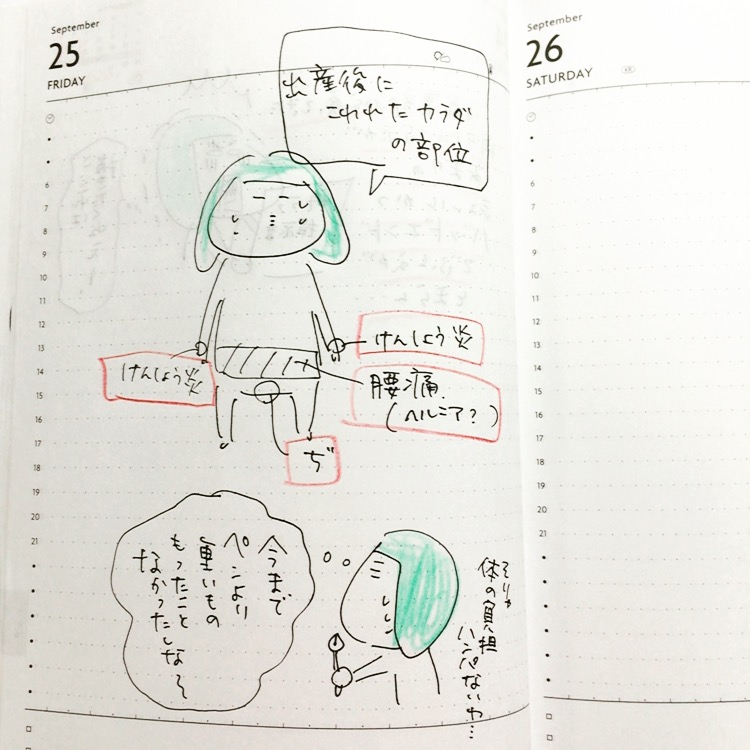 September
25
FRIDAY
September
26
SATURDAY
出産後に
こわれたカラダ
の部位
けんしょう炎
けんしょう炎
腰痛
(ヘルニア?)
ぢ
今まで
ペンより
重いもの
もったこと
なかったしな〜
そりゃ
体の負担
ハンパないわ…
6
7
8
9
10
11
12
13
14
15
16
17
18
19
20
21
6
7
8
9
10
11
12
13
14
15
16
17
18
19
20
21